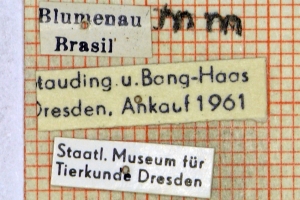 Blumenau
Brasil
tauding. u. Bang-Haas
Dresden, Ankauf 1961
Staatl. Museum für
Tierkunde Dresden